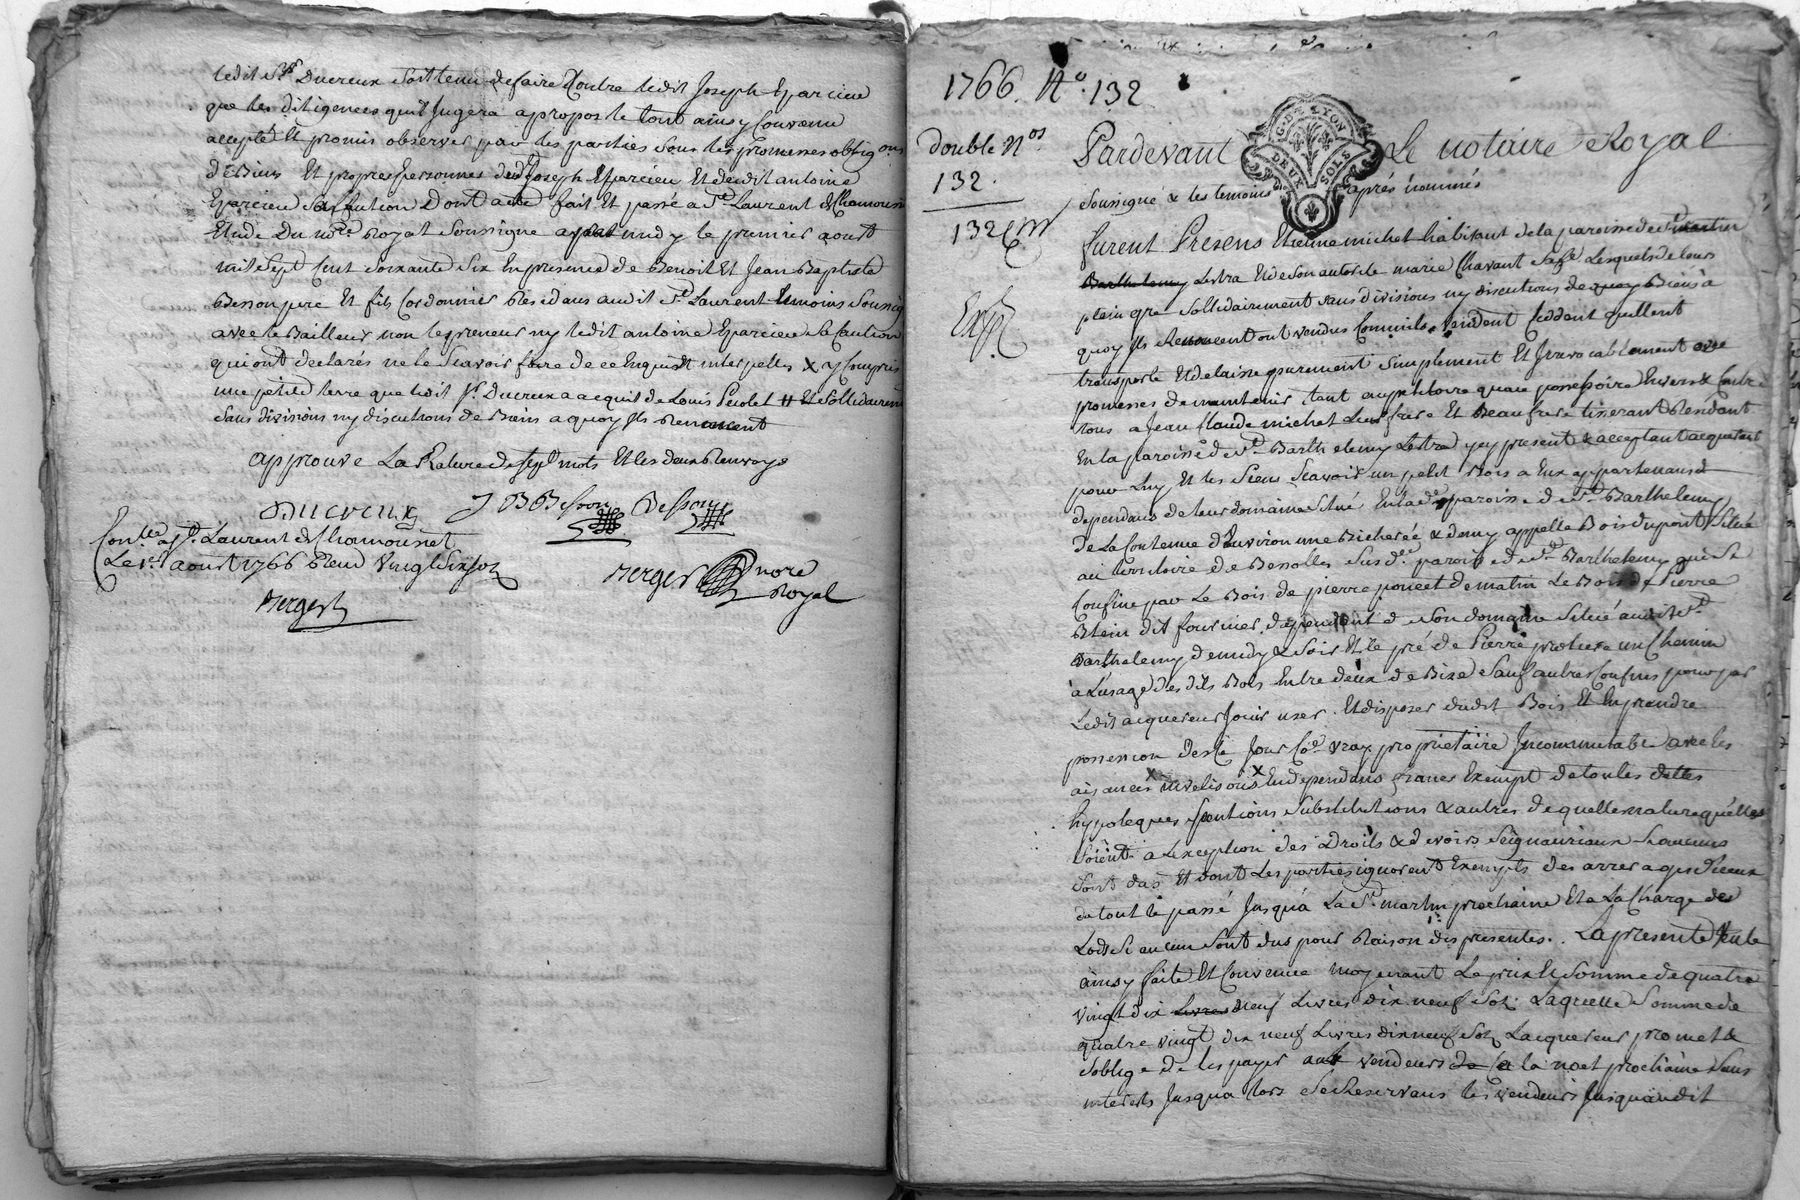 ledit Sr Ducreux soit tenu de faire Contre ledit Joseph Eparcieu
que les diligences quil Jugera apropos le tout ainsy Convenu
accepté Et promis observer par les parties sous les promesses obligons
de Biens Et propres personnes dud Joseph Eparcieu Et dudit antoine
Eparcieu sa Caution Dont acte fait Et passé a St Laurent de Chamousset
Etude Du nore Royal Soussigné apres midy le premier aoust
mil sept Cent Soixante Six En presence de Benoit Et Jean Baptiste
Besson pere Et fils Cordonnier Residans audit St Laurent temoins Soussig
avec le Bailleur non le preneur ny ledit antoine Eparcieu sa Caution
qui ont declarés ne le Scavoir faire de ce Enquis Et interpellés X y Compris
une petite terre que ledit Sr Ducreux a acquit de Louis # Et Sollidairement
sans divisions ny discutions de Biens a quoy Ils Renoncent
approuvé La Rature de sept mots Et les deux Renvoys
Ducreux J B Besson Besson
Contlé a St Laurent de Chamousset
Le 1er aoust 1766 Reçu Vingt Six sols
Berger nore
Royal
Berger
1766. No. 132
double Nos
132.
132
Exp
G. DE LYON
DEUX SOLS
Pardevant Le notaire Royal
Soussigné & les temoins après nommés
furent Presens Etienne michel habitant de la paroisse de St martin
Barthelemy Lestra Et de Son autorité marie Chavant Sa fe Lesquels de leurs
plein gré Sollidairement Sans divisions ny discutions de Biens à
quoy Ils Renoncent ont vendus Comm'ils vendent Ceddent quittent
transporte Et delaisse purement Simplement Et Irrevocablement avec
promesses de maintenir tant aupetitoire quau possessoire Envers & Contre
tous a Jean Claude michel Leur frere Et Beaufrere tisserant Residant
En la paroisse de St Barthelemy Lestra ycy present & acceptant acquerant
pour Luy Et les Siens Scavoir un petit Bois a Eux appartenant
dependans de leur domaine Situé En lade paroisse de St Barthelemy
de La Contenue d'Environ une Bicherée & demy appellé Bois dupont Situé
au territoire de Benolles Susde paroisse de St Barthelemy qui Se
Confine par Le Bois de pierre poncet de matin Le Bois de Pierre
Blein dit fournier dependent de Son domaine Situé audit St
Barthelemy de midy & Soir Et le pré de Pierre un Chemin
à Lusage des dits Bois Entre deux de Bize Sauf autres Confins pour par
Ledit acquereur Jouir user Et disposer dudit Bois Et En prendre
possession des Ce Jour Coe vray proprietaire Incommutable avec les
aisances X Independans francs Exempt de toutes dettes
hypoteques Substitutions & autres de quelle nature qu'elles
Soient a Lexception des Droits & devoirs Seigneuriaux Si aucuns
Sont dus Et dont Les parties ignorent Exempts des arrerages Diceux
du tout le passé Jusqu'à La St martin prochaine Et a La Charge des
Lods Si aucun Sont dus pour Raison des presentes. La presente Vente
ainsy faite Et Convenue moyenant Le prix Et Somme de quatre
vingt dix Livres neuf Livres dix neuf Sols Laquelle Somme de
quatre vingt dix neuf Livres dix neuf Sols Lacquereur promet &
Soblige de les payer aux vendeurs a la noel prochaine Sans
interets Jusqua lors Se Reservans les vendeurs Jusquaudit